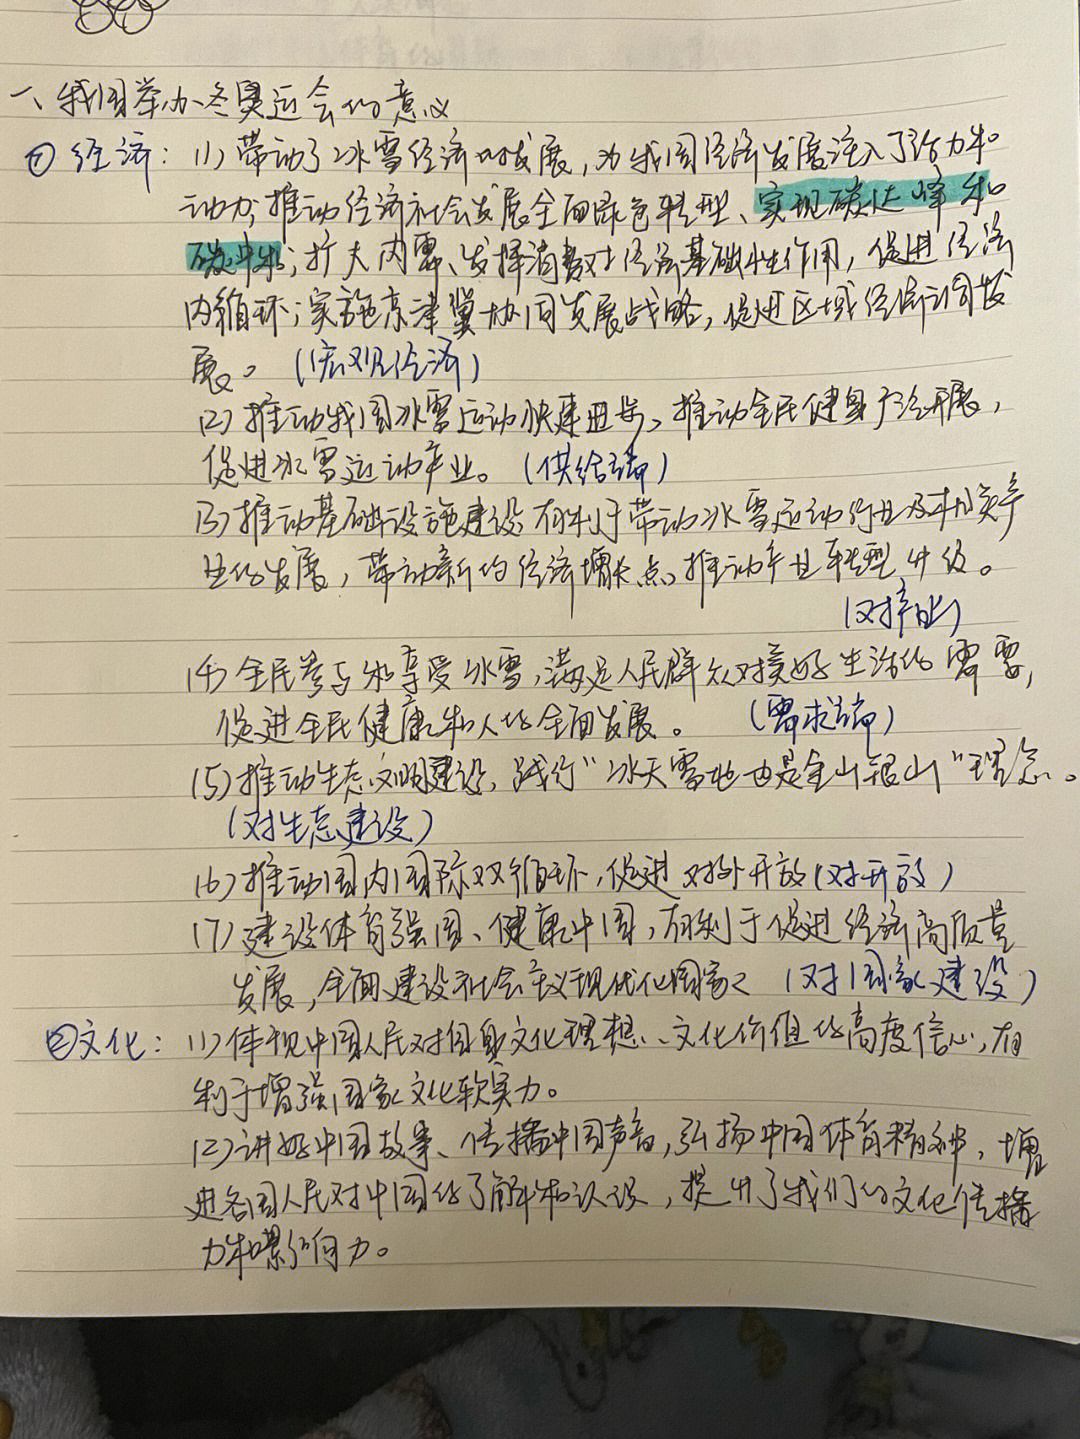 一、我国举办冬奥运会的意义
① 经济：(1)带动了冰雪经济的发展，为我国经济发展注入了活力和
动力；推动经济社会发展全面绿色转型、实现碳达峰和
碳中和；扩大内需、发挥消费对经济基础性作用，促进经济
内循环；实施京津冀协同发展战略，促进区域经济协同发
展。（宏观经济）
(2)推动我国冰雪运动快速进步、推动全民健身广泛开展，
促进冰雪运动产业。（供给端）
(3)推动基础设施建设，有利于带动冰雪运动行业及相关产
业的发展，带动新的经济增长点。推动产业转型升级。
（对产业）
(4)全民参与和享受冰雪，满足人民群众对美好生活的需要，
促进全民健康和人的全面发展。（需求端）
(5)推动生态文明建设，践行"冰天雪地也是金山银山"理念。
（对生态建设）
(6)推动国内国际双循环，促进对外开放（对开放）
(7)建设体育强国、健康中国，有利于促进经济高质量
发展，全面建设社会主义现代化国家（对国家建设）
②文化：(1)体现中国人民对自身文化理想、文化价值的高度信心，有
利于增强国家文化软实力。
(2)讲好中国故事、传播中国声音，弘扬中国体育精神，增
进各国人民对中国的了解和认识，提升了我们的文化传播
力和影响力。